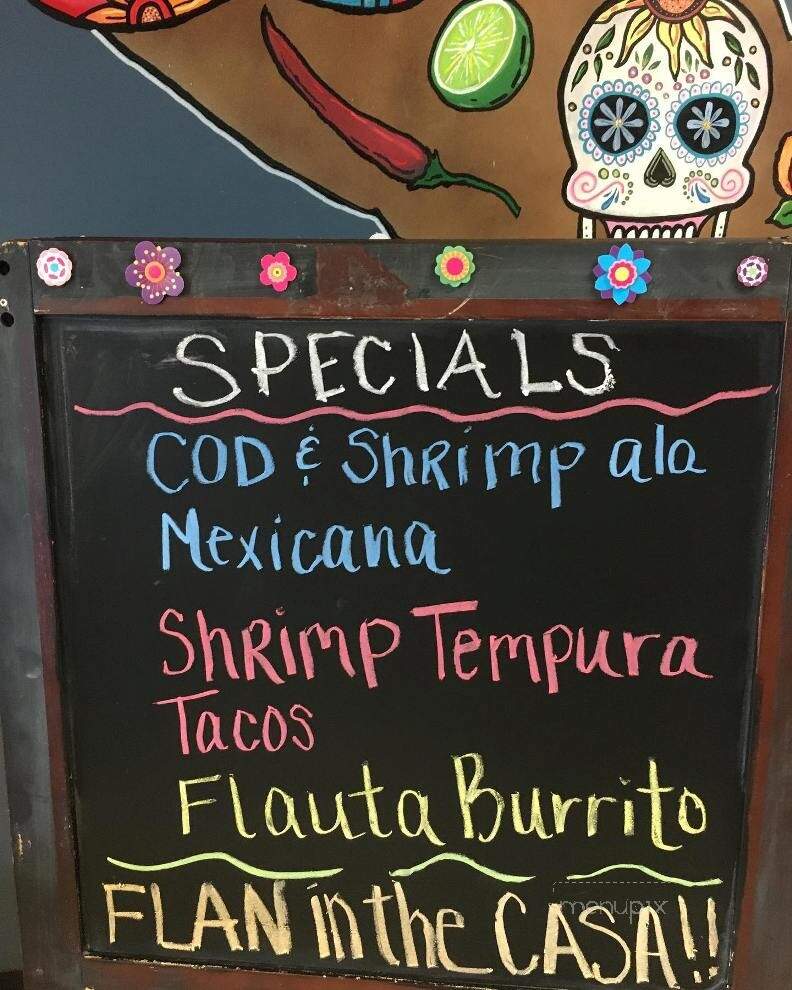 SPECIALS
COD & ShRimp ala
Mexicana
ShRimp Tempura
Tacos
Flauta Burrito
FLAN in the CASA!!
menupix